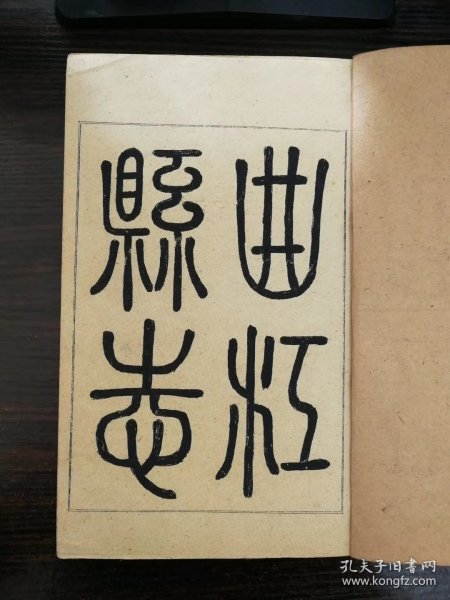 曲江
縣志
孔夫子旧书网
www.kongfz.com